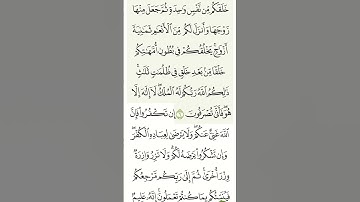 خَلَقَكُم مِّن نَّفْسٍ وَٰحِدَةٍ ثُمَّ جَعَلَ مِنْهَا
زَوْجَهَا وَأَنزَلَ لَكُم مِّنَ ٱلْأَنْعَٰمِ ثَمَٰنِيَةَ
أَزْوَٰجٍ يَخْلُقُكُمْ فِى بُطُونِ أُمَّهَٰتِكُمْ
خَلْقًا مِّنۢ بَعْدِ خَلْقٍ فِى ظُلُمَٰتٍ ثَلَٰثٍ
ذَٰلِكُمُ ٱللَّهُ رَبُّكُمْ لَهُ ٱلْمُلْكُ لَآ إِلَٰهَ إِلَّا
هُوَ فَأَنَّىٰ تُصْرَفُونَ ٦ إِن تَكْفُرُوا۟ فَإِنَّ
ٱللَّهَ غَنِىٌّ عَنكُمْ وَلَا يَرْضَىٰ لِعِبَادِهِ ٱلْكُفْرَ
وَإِن تَشْكُرُوا۟ يَرْضَهُ لَكُمْ وَلَا تَزِرُ وَازِرَةٌ
وِزْرَ أُخْرَىٰ ثُمَّ إِلَىٰ رَبِّكُم مَّرْجِعُكُمْ
فَيُنَبِّئُكُم بِمَا كُنتُمْ تَعْمَلُونَ إِنَّهُۥ عَلِيمٌۢ